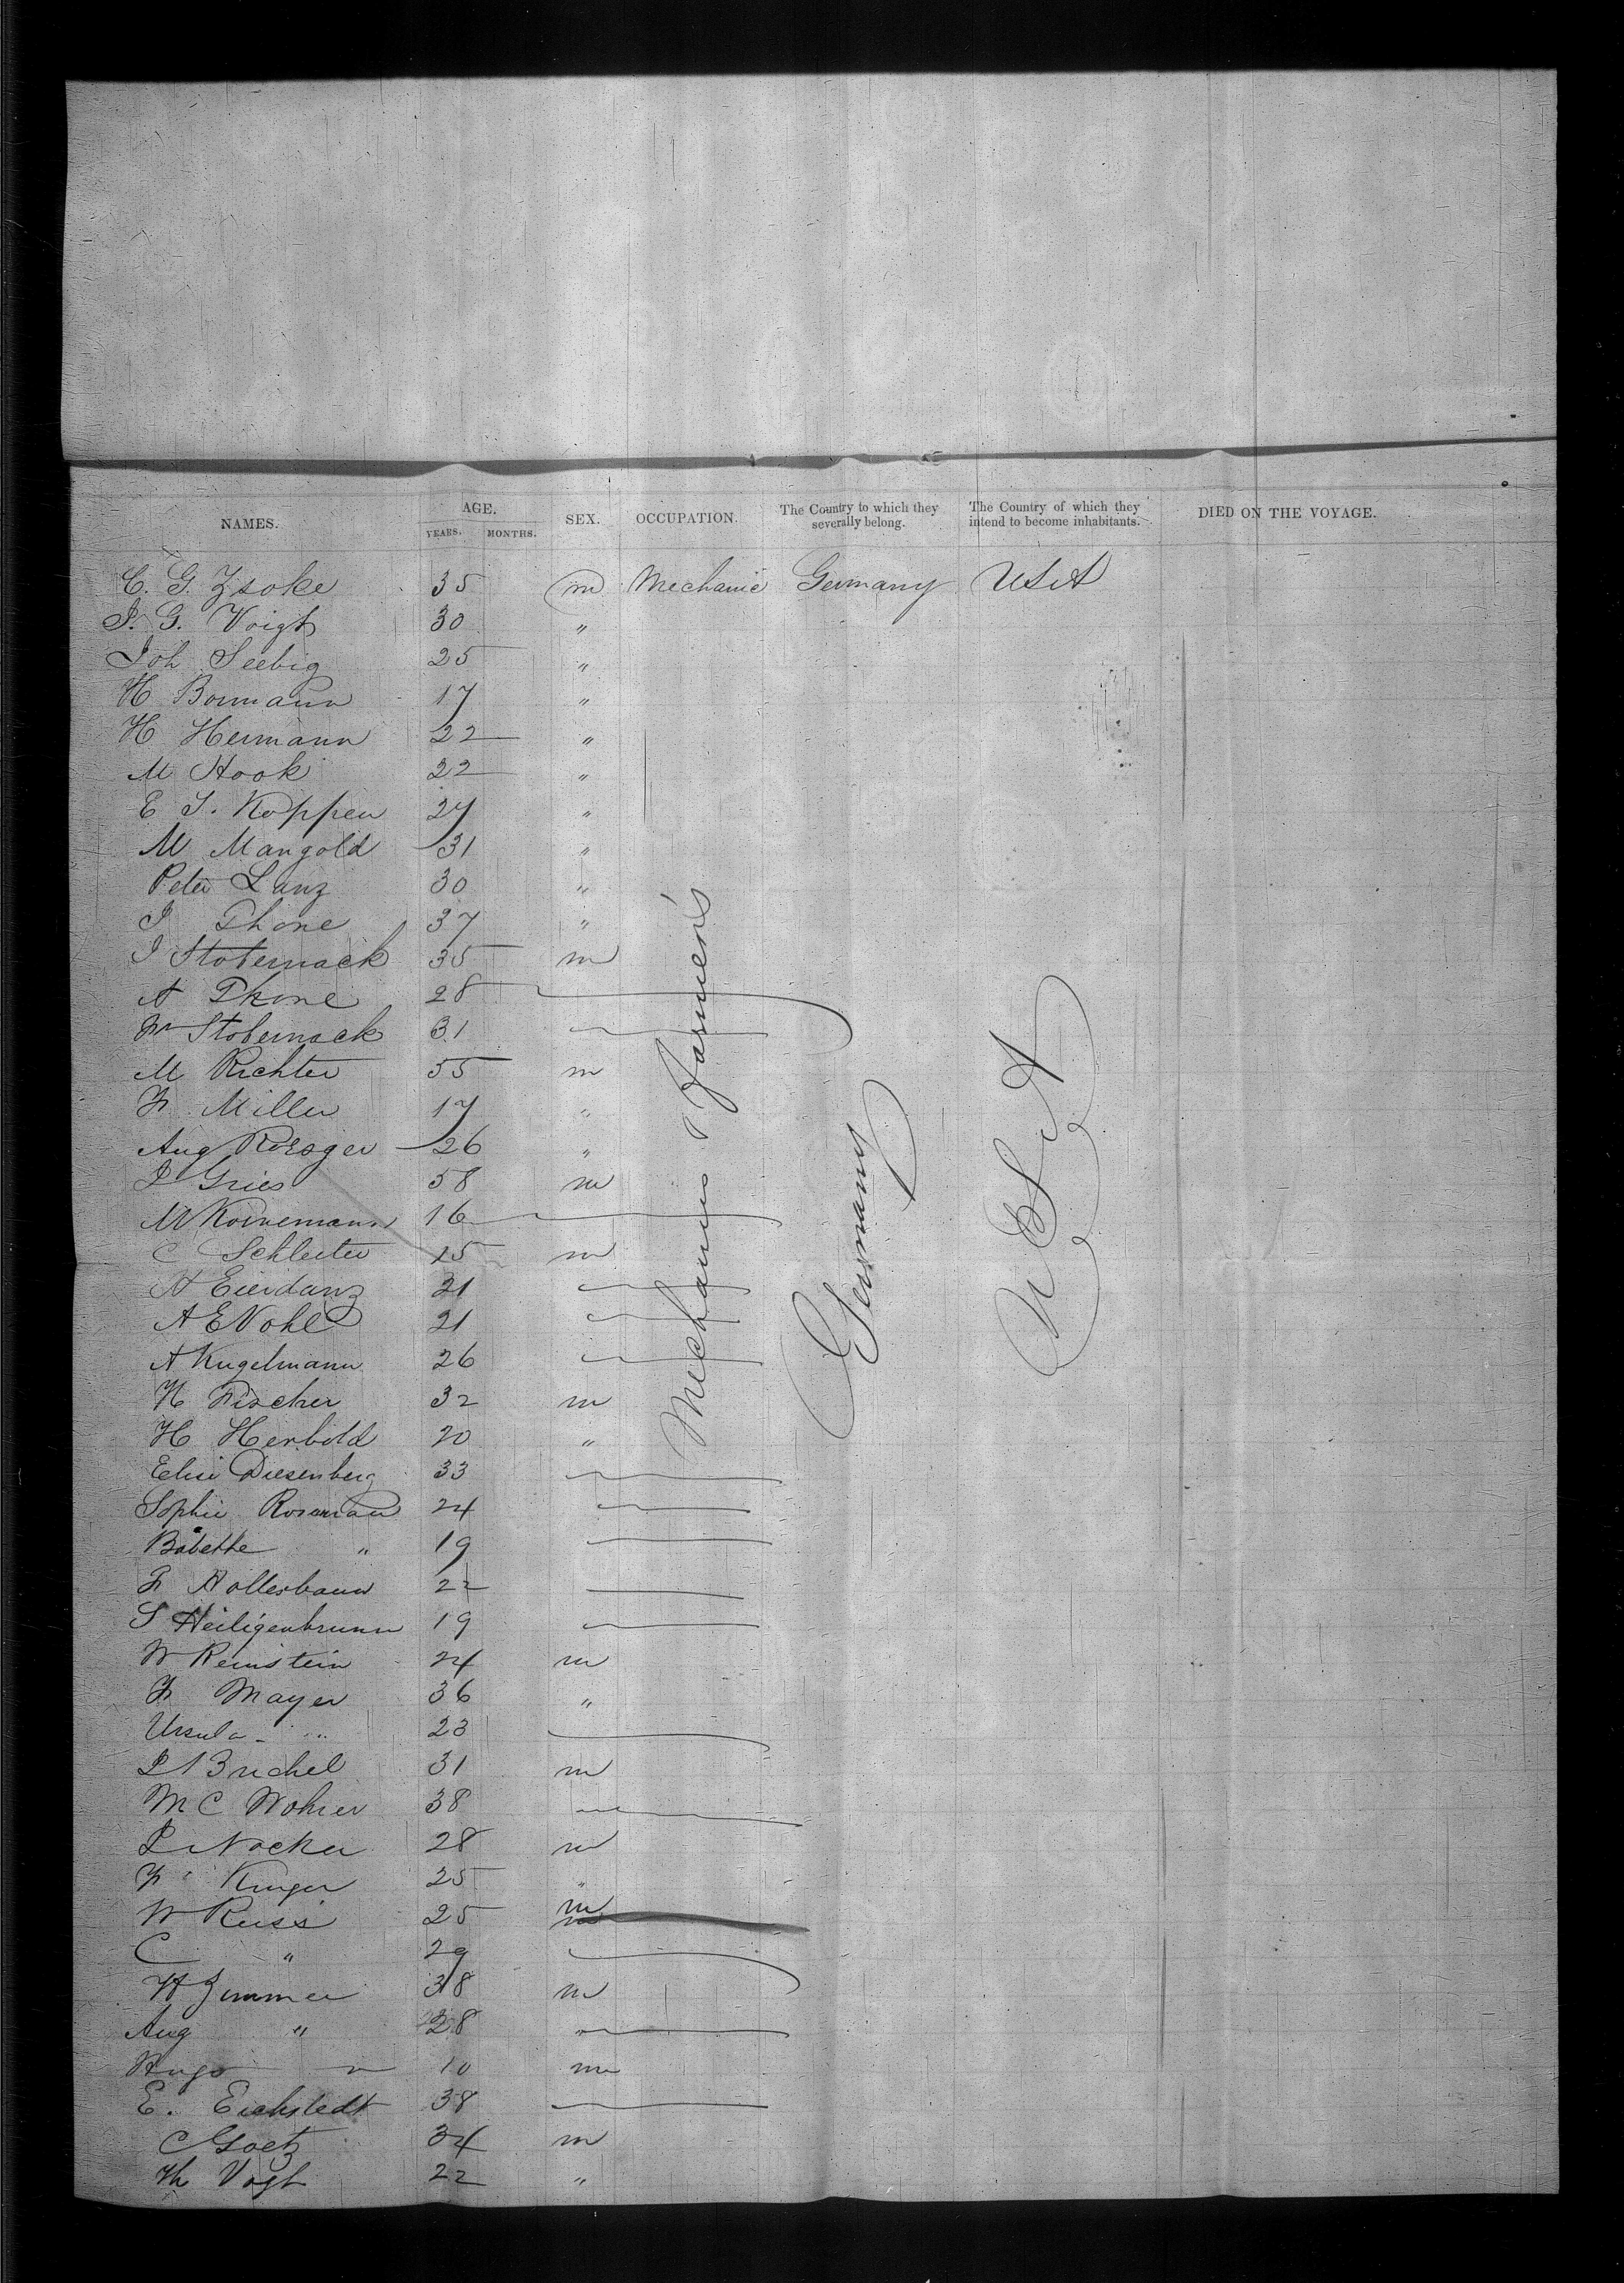 NAMES. AGE. SEX. OCCUPATION. The Country to which they severally belong. The Country of which they intend to become inhabitants. DIED ON THE VOYAGE.
YEARS. MONTHS.
C. G. Zsoke 35 m Mechanic Germany USA
J. G. Voigt 30 "
Joh Seebig 25 "
H Bormann 17 "
H Hermann 22 "
M Hook 22 "
E J. Koppen 27 "
M Mangold 31 "
Peter Lanz 30 "
J Thone 37 "
J Stobernack 35 m
A Thone 28
Wm Stobernack 31
M Richter 55 m
Fr Miller 17 "
Aug Roesger 26 "
J Gries 58 m
M Kornemann 16
C Schleiter 15 m
A Eierdanz 21
A E Nohl 21
A Kugelmann 26
H Fischer 32 m
H Herbold 20 "
Elise Diesenberg 33
Sophie Rosenau 24
Babette " 19
Fr 22
S Heiligenbrunn 19
W Reinstein 24 m
Fr Mayer 36 "
Ursula " 23
L Bruchel 31 m
M C Wohrer 38
L Nocker 28 m
Fr Kruger 25 "
W Reiss 25 m
C " 29
H Zimmer 38 m
Aug " 28
Hugo " 10 m
E. Eichstedt 38
C Goetz 34 m
Th Vogt 22 "
Mechanics & Farmers
Germany
U S A